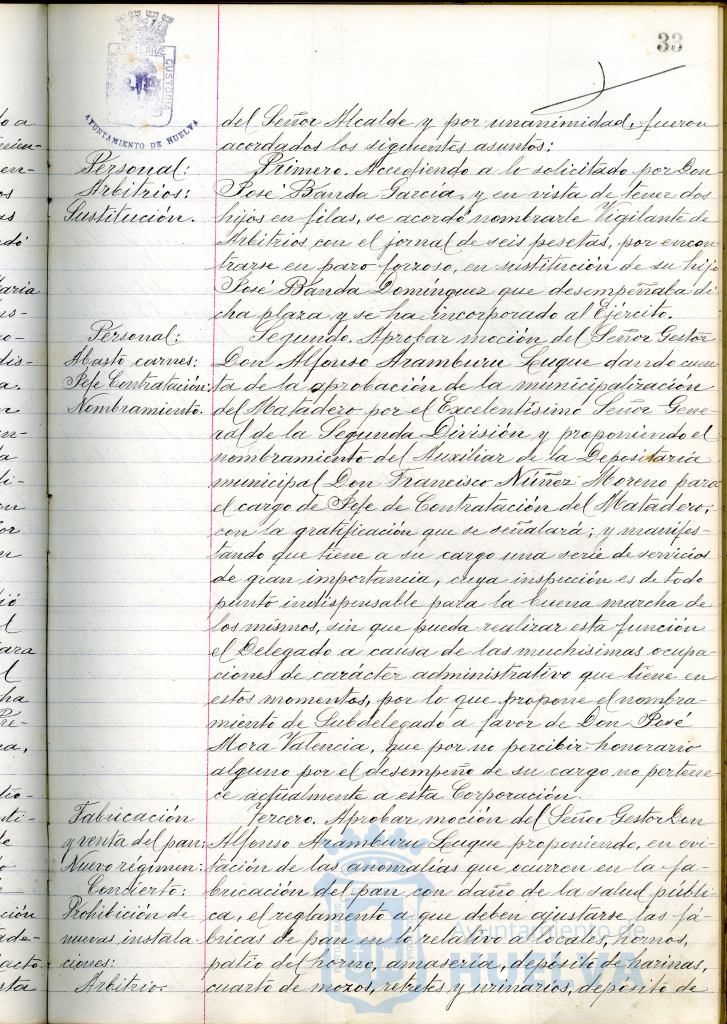 33
AYUNTAMIENTO DE HUELVA
del Señor Alcalde y por unanimidad, fueron
acordados los siguientes asuntos:
Personal:
Arbitrios:
Sustitución.
Primero. Accediendo a lo solicitado por Don
José Banda García, y en vista de tener dos
hijos en filas, se acordó nombrarle Vigilante de
Arbitrios con el jornal de seis pesetas, por encon
trarse en paro forzoso, en sustitución de su hijo
José Banda Domínguez que desempeñaba di
cha plaza y se ha incorporado al Ejército.
Personal:
Abasto carnes:
Jefe Contratación:
Nombramiento.
Segundo. Aprobar moción del Señor Gestor
Don Alfonso Aramburu Luque dando cuen
ta de la aprobación de la municipalización
del Matadero por el Excelentísimo Señor Gene
ral de la Segunda División y proponiendo el
nombramiento del Auxiliar de la Depositaría
municipal Don Francisco Núñez Moreno para
el cargo de Jefe de Contratación del Matadero,
con la gratificación que se señalará; y manifes-
tando que tiene a su cargo una serie de servicios
de gran importancia, cuya inspección es de todo
punto indispensable para la buena marcha de
los mismos, sin que pueda realizar esta función
el Delegado a causa de las muchísimas ocupa
ciones de carácter administrativo que tiene en
estos momentos, por lo que propone el nombra-
miento de Subdelegado a favor de Don José
Mora Valencia, que por no percibir honorario
alguno por el desempeño de su cargo no pertene
ce actualmente a esta Corporación.
Fabricación
y venta del pan:
Nuevo régimen:
Concierto:
Prohibición de
nuevas instala
ciones:
Arbitrio.
Tercero. Aprobar moción del Señor Gestor Don
Alfonso Aramburu Luque proponiendo, en evi
tación de las anomalías que ocurren en la fa-
bricación del pan con daño de la salud públi
ca, el reglamento a que deben ajustarse las fá-
bricas de pan en lo relativo a locales, hornos,
patio del horno, amasería, depósito de harinas,
cuarto de mozos, retretes y urinarios, depósito de
Ayuntamiento de
HUELVA